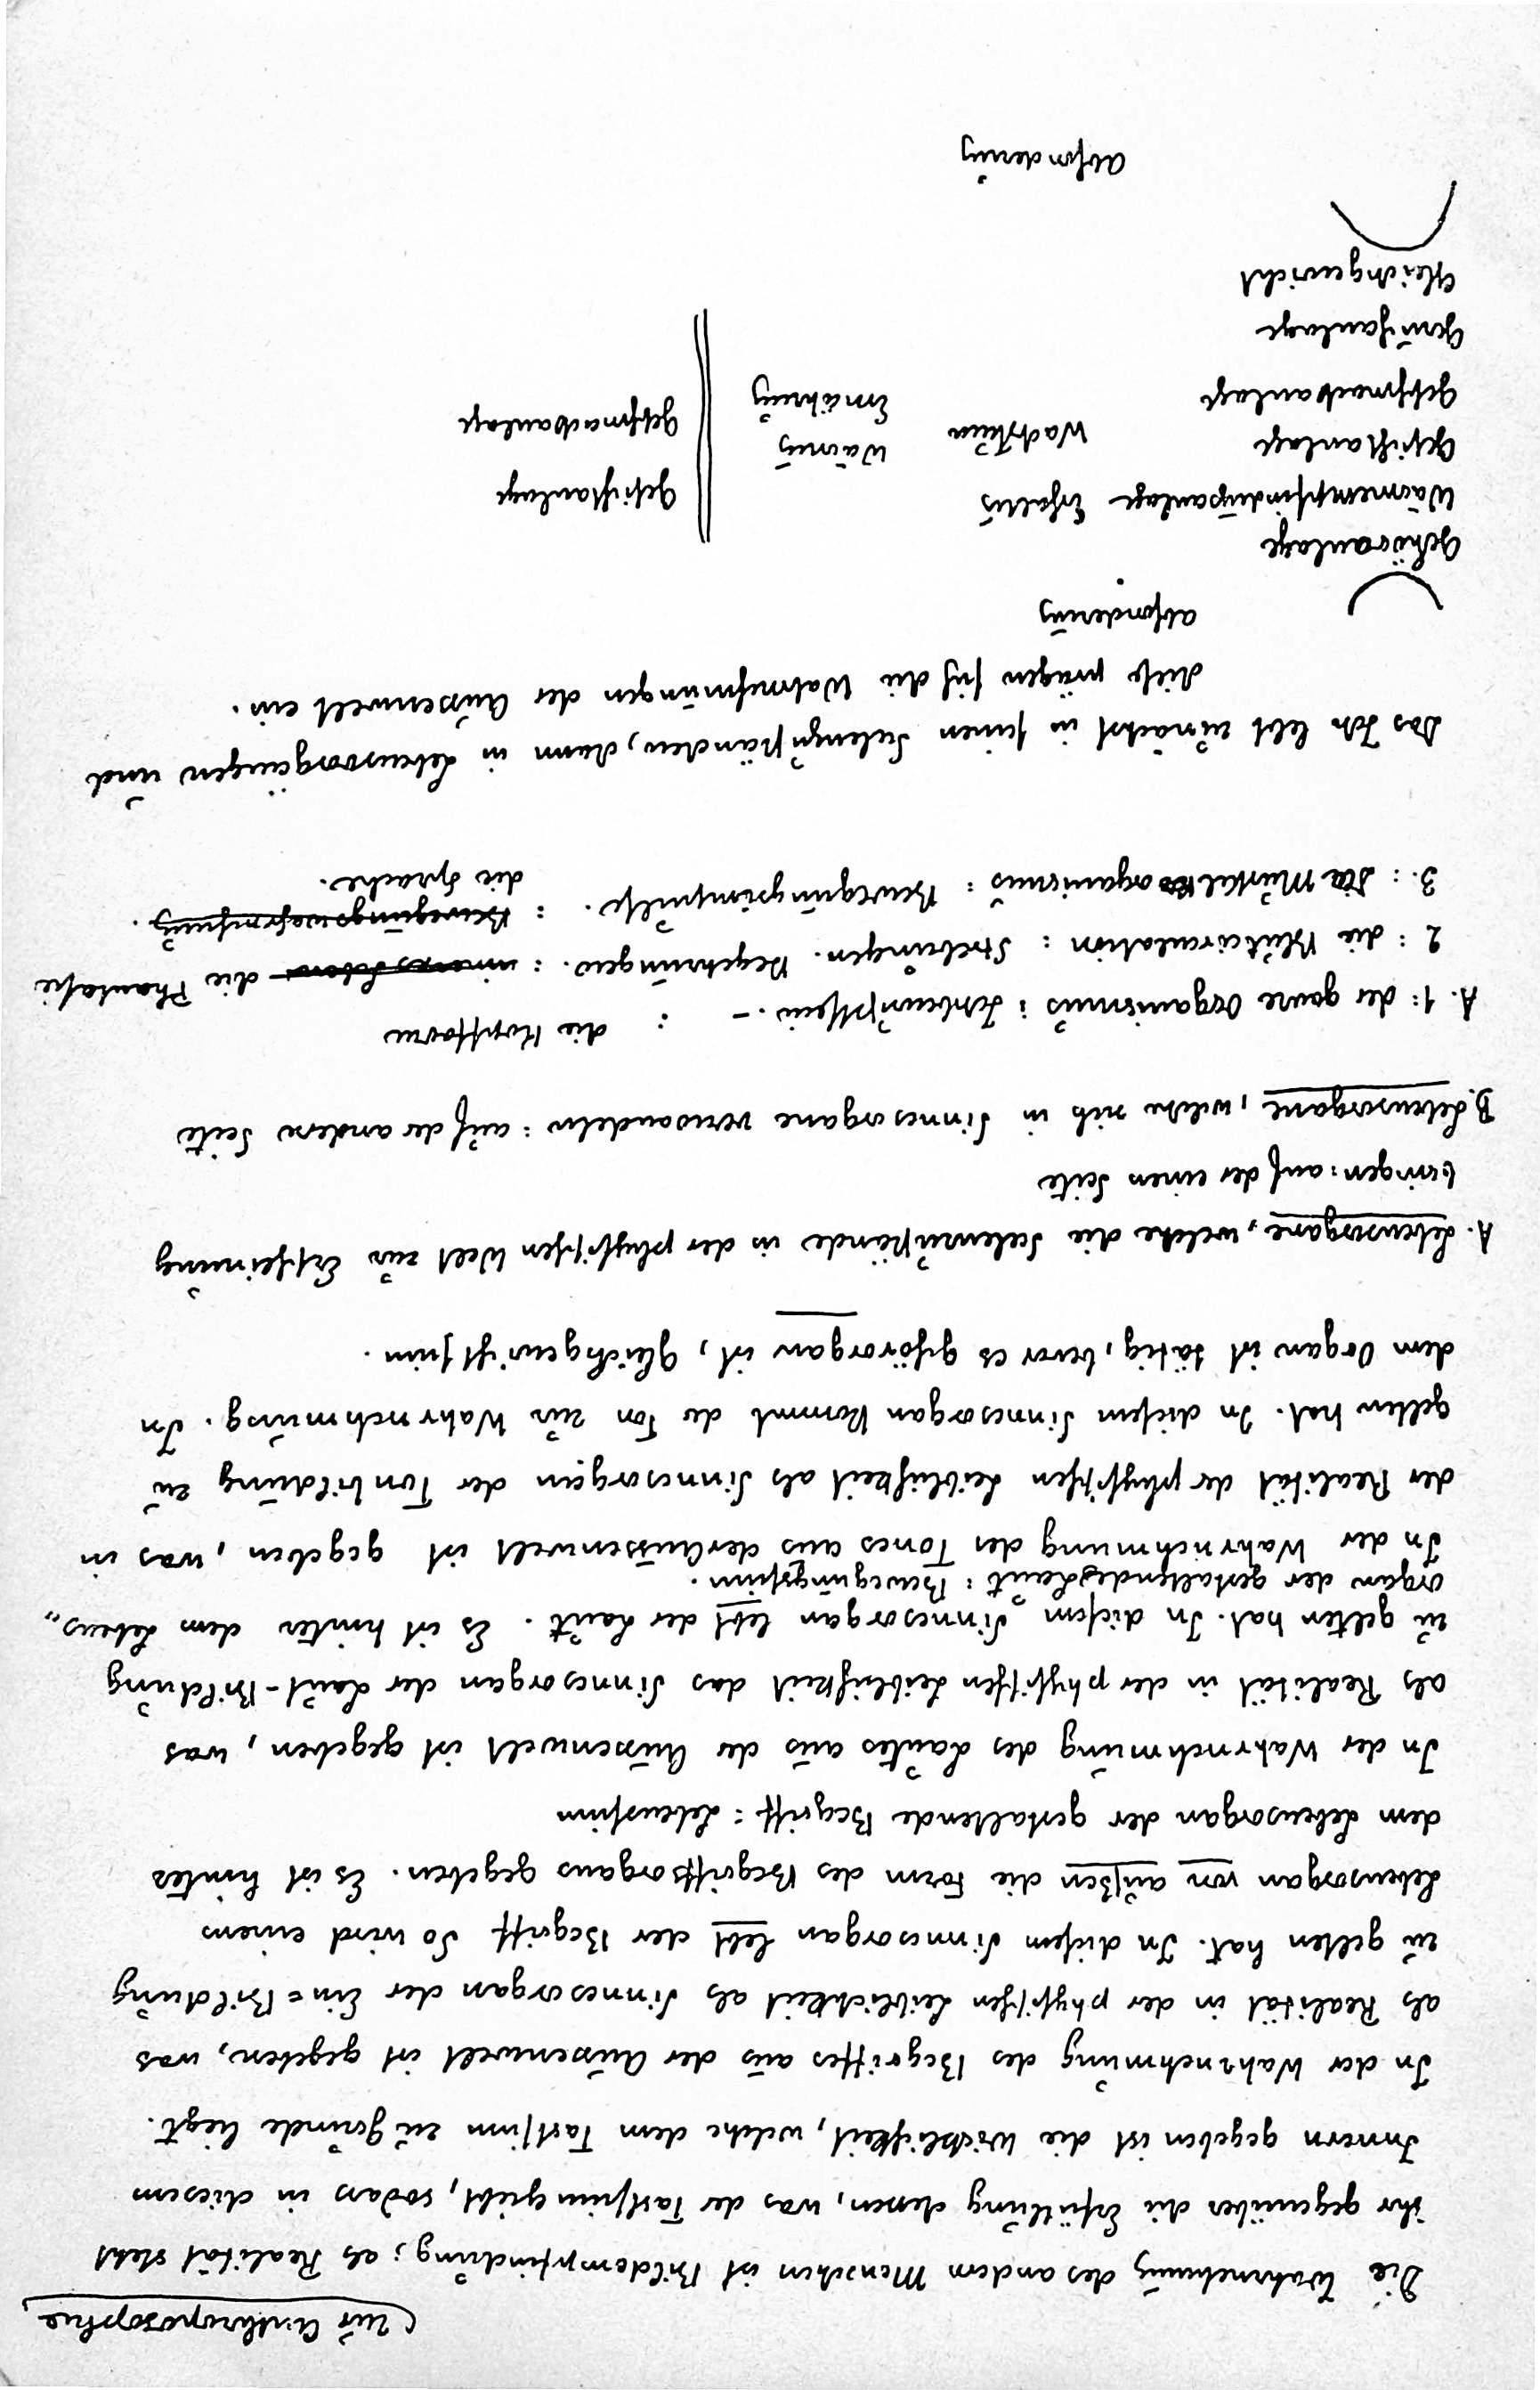 (zur Anthroposophie)
Die Wahrnehmung des andern Menschen ist Bildempfindung; als Realität steht
ihr gegenüber die Erfüllung dessen, was der Tastsinn giebt, sodass in diesem
Innern gegeben ist die Wirklichkeit, welche dem Tastsinn zu Grunde liegt.
In der Wahrnehmung des Begriffes aus der Aussenwelt ist gegeben, was
als Realität in der physischen Leiblichkeit als Sinnesorgan der Ein=Bildung
zu gelten hat. In diesem Sinnesorgan lebt der Begriff So wird einem
Lebensorgan von außen die Form des Begriffsorgans gegeben. Es ist hinter
dem Lebensorgan der gestaltende Begriff: Lebenssinn
In der Wahrnehmung des Lautes aus der Aussenwelt ist gegeben, was
als Realität in der physischen Leiblichkeit das Sinnesorgan der Laut-Bildung
zu gelten hat. In diesem Sinnesorgan lebt der Laut. Es ist hinter dem Lebens„
organ der gestaltende Laut: Bewegungssinn.
In der Wahrnehmung des Tones aus der Aussenwelt ist gegeben, was in
der Realität der physischen Leiblichkeit als Sinnesorgan der Tonbildung zu
gelten hat. In diesem Sinnesorgan kommt der Ton zur Wahrnehmung. In
dem Organ ist tätig, bevor es Gehörorgan ist, Gleichgewichtsinn.
A. Lebensorgane, welche die Seelenzustände in der physischen Welt zur Erscheinung
bringen: auf der einen Seite
B. Lebensorgane, welche sich in Sinnesorgane verwandeln: auf der andern Seite
A. 1: der ganze Organismus: Ichbewusstsein. – : die Kopfform
2: die Blutcirculation: Strebungen. Begehrungen. : inneres Leben die Phantasie
3.: Die Muskelorganismus: Bewegungsimpulse. : Bewegungswahrnehmung.
die Sprache.
Das Ich lebt zunächst in seinen Seelenzuständen, dann in Lebensvorgängen und
diese prägen sich die Wahrnehmungen der Aussenwelt ein.
Absonderung
Gehöranlage
Wärmeempfindungsanlage Erhaltung Gesichtanlage
Gesichtanlage Wachstum Wärmung
Geschmackanlage Ernährung Geschmackanlage
Geruchanlage
Gleichgewicht
Absonderung